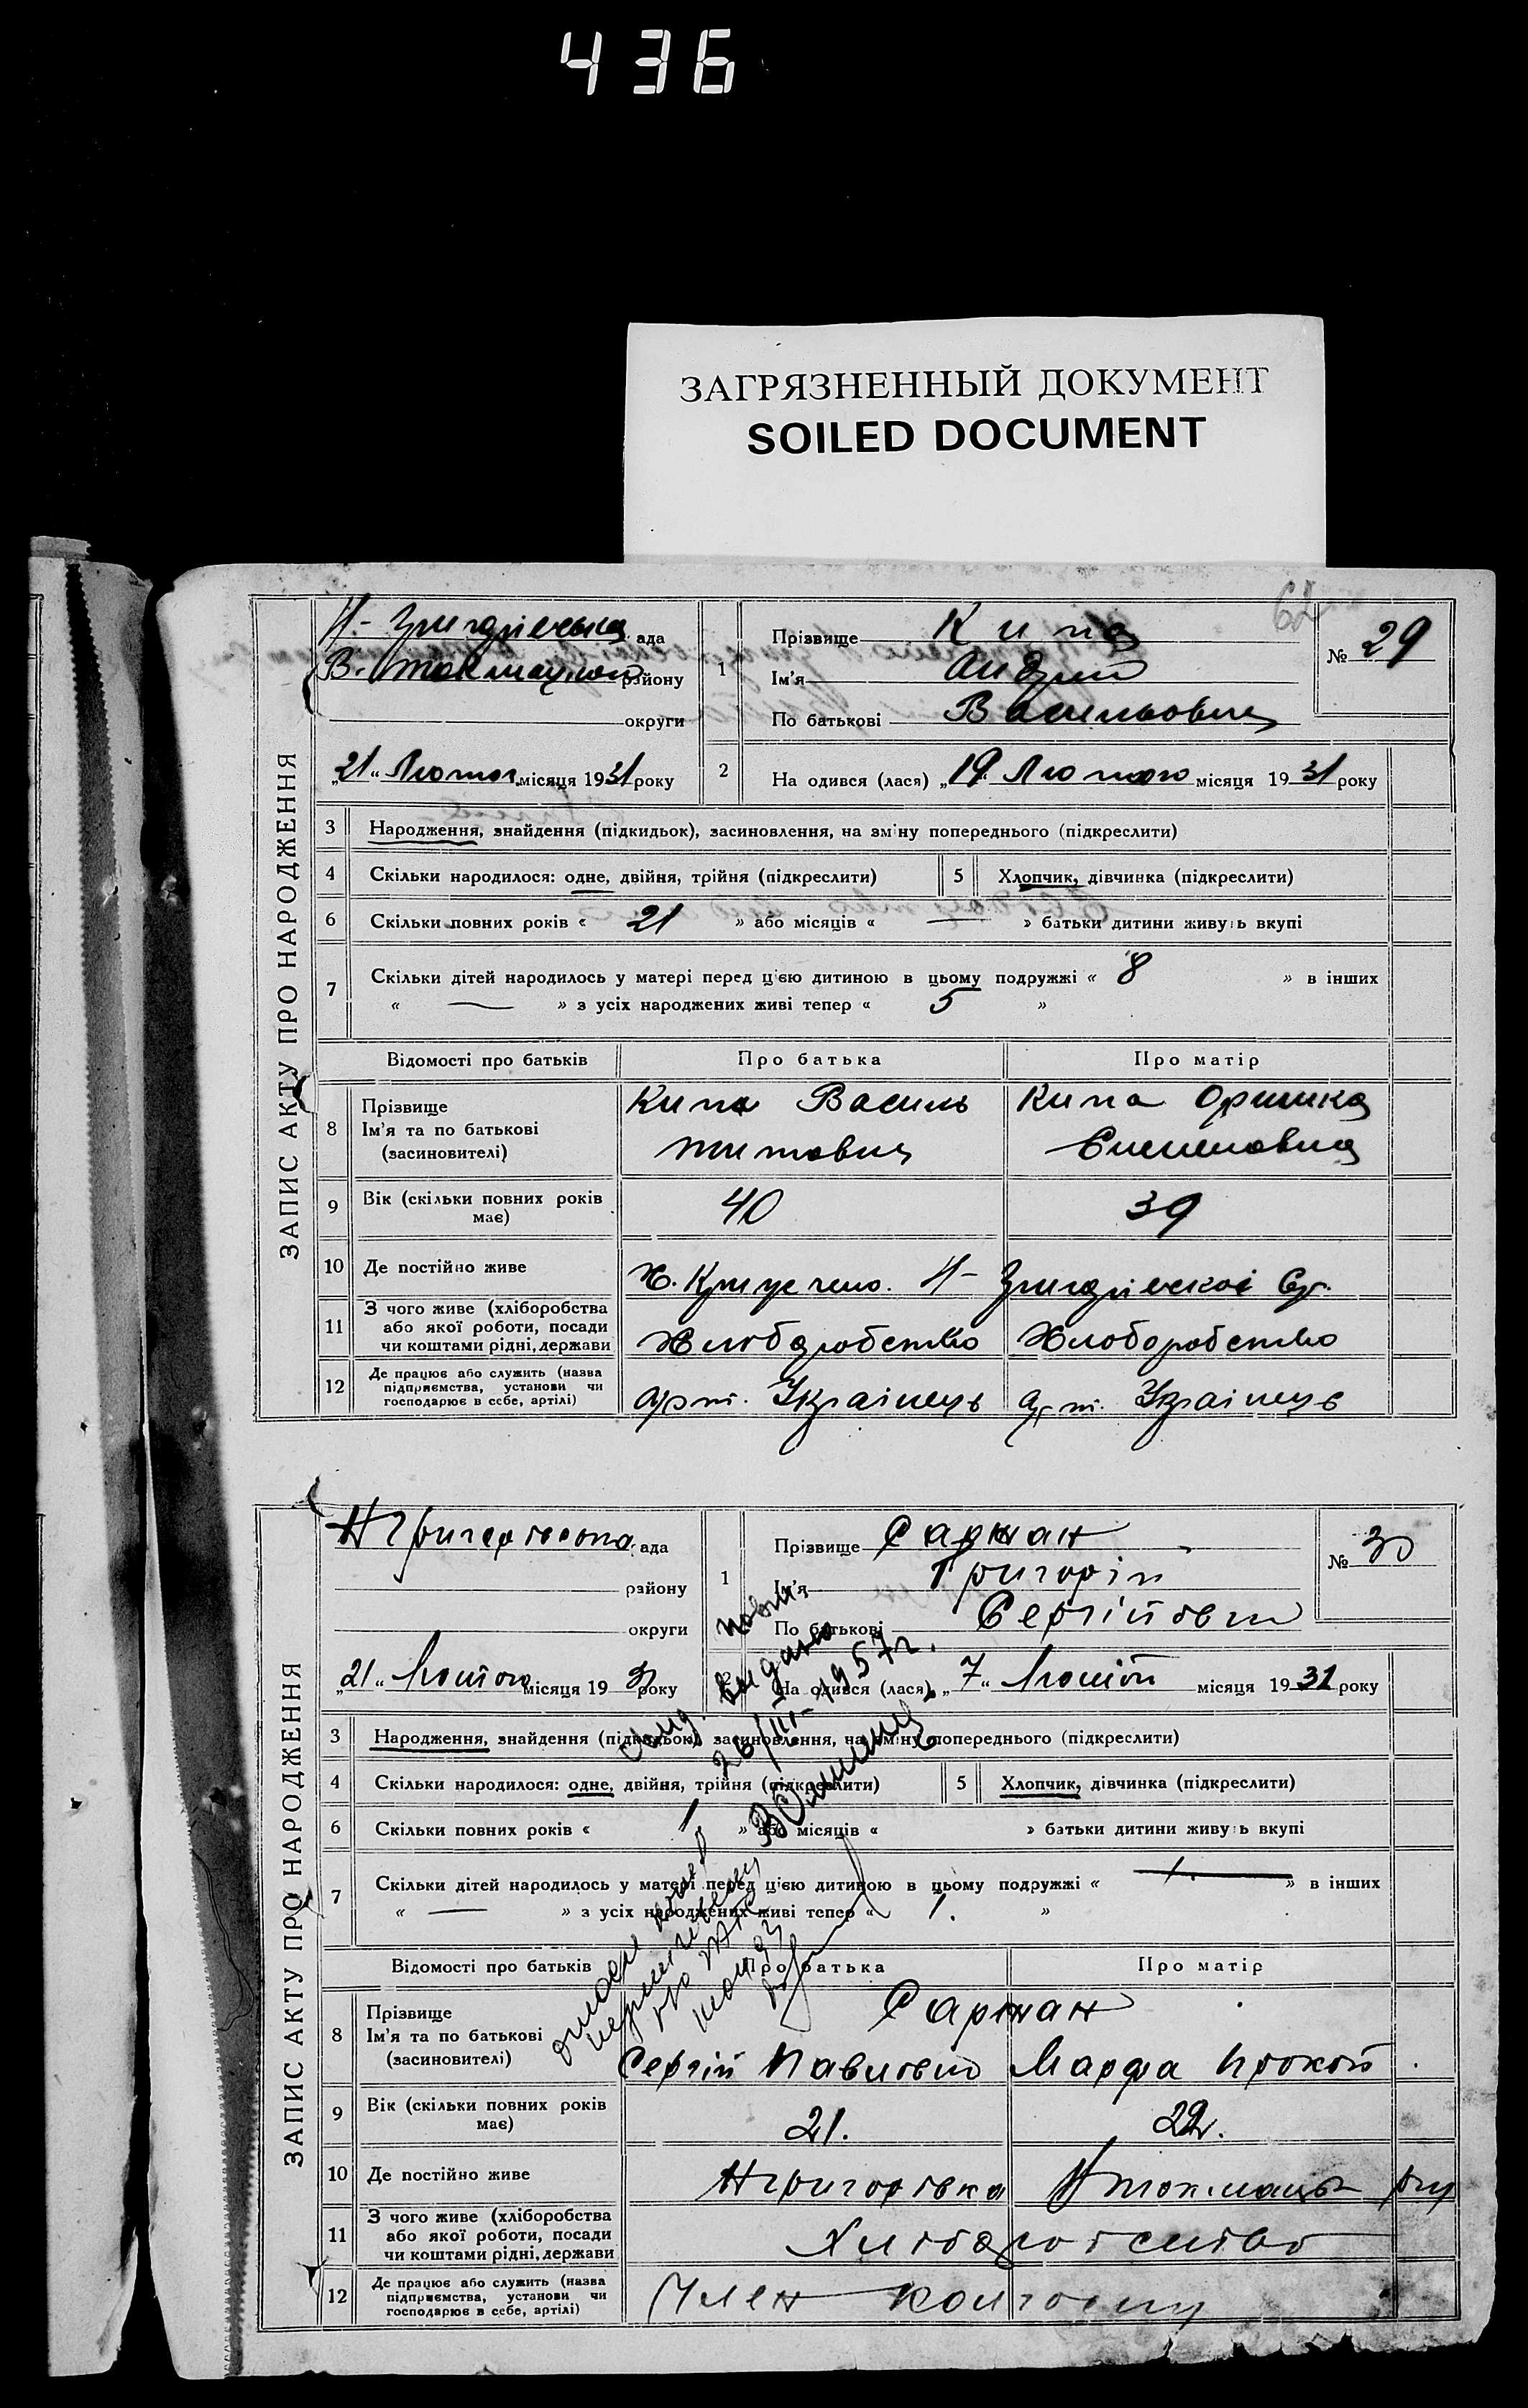 436
ЗАГРЯЗНЕННЫЙ ДОКУМЕНТ
SOILED DOCUMENT
62
ЗАПИС АКТУ ПРО НАРОДЖЕННЯ
ада
В. Токмац району
округи
„21“ Лютого місяця 1931 року
1 Прізвище Кипа
Ім'я Андрій
По батькові Васильович
№ 29
2 На одився (лася) „19“ Лютого місяця 1931 року
3 Народження, знайдення (підкидьок), засиновлення, на зміну попереднього (підкреслити)
4 Скільки народилося: одне, двійня, трійня (підкреслити) 5 Хлопчик, дівчинка (підкреслити)
6 Скільки повних років « 21 » або місяців « — » батьки дитини живуть вкупі
7 Скільки дітей народилось у матері перед цією дитиною в цьому подружжі « 8 » в інших
« — » з усіх народжених живі тепер « 5 »
Відомості про батьків Про батька Про матір
8 Прізвище Ім'я та по батькові (засиновителі)
Кипа Василь Титович
Кипа Оришка
9 Вік (скільки повних років має) 40 39
10 Де постійно живе
11 З чого живе (хліборобства або якої роботи, посади чи коштами рідні, держави Хліборобство Хлоборобство
12 Де працює або служить (назва підприємства, установи чи господарює в себе, артілі) Арт. Українець Арт. Українець
ЗАПИС АКТУ ПРО НАРОДЖЕННЯ
ада
району
округи
„21“ Лютого місяця 1931 року
1 Прізвище Саржан
Ім'я Григорій
По батькові Сергійович
№ 30
На одився (лася) „7“ Лютой місяця 1931 року
3 Народження, знайдення (підкидьок), засиновлення, на зміну попереднього (підкреслити)
4 Скільки народилося: одне, двійня, трійня (підкреслити) 5 Хлопчик, дівчинка (підкреслити)
6 Скільки повних років « 1 » або місяців « » батьки дитини живуть вкупі
7 Скільки дітей народилось у матері перед цією дитиною в цьому подружжі « 1. » в інших
« — » з усіх народжених живі тепер « 1. »
видано
26/III-1957г.
Відомості про батьків Про батька Про матір
8 Прізвище Ім'я та по батькові (засиновителі)
Саржан
Сергій Павлович Марфа Прокоп
9 Вік (скільки повних років має) 21. 22.
10 Де постійно живе Н Григорівка
11 З чого живе (хліборобства або якої роботи, посади чи коштами рідні, держави Хлібо
12 Де працює або служить (назва підприємства, установи чи господарює в себе, артілі) Член колгоспу